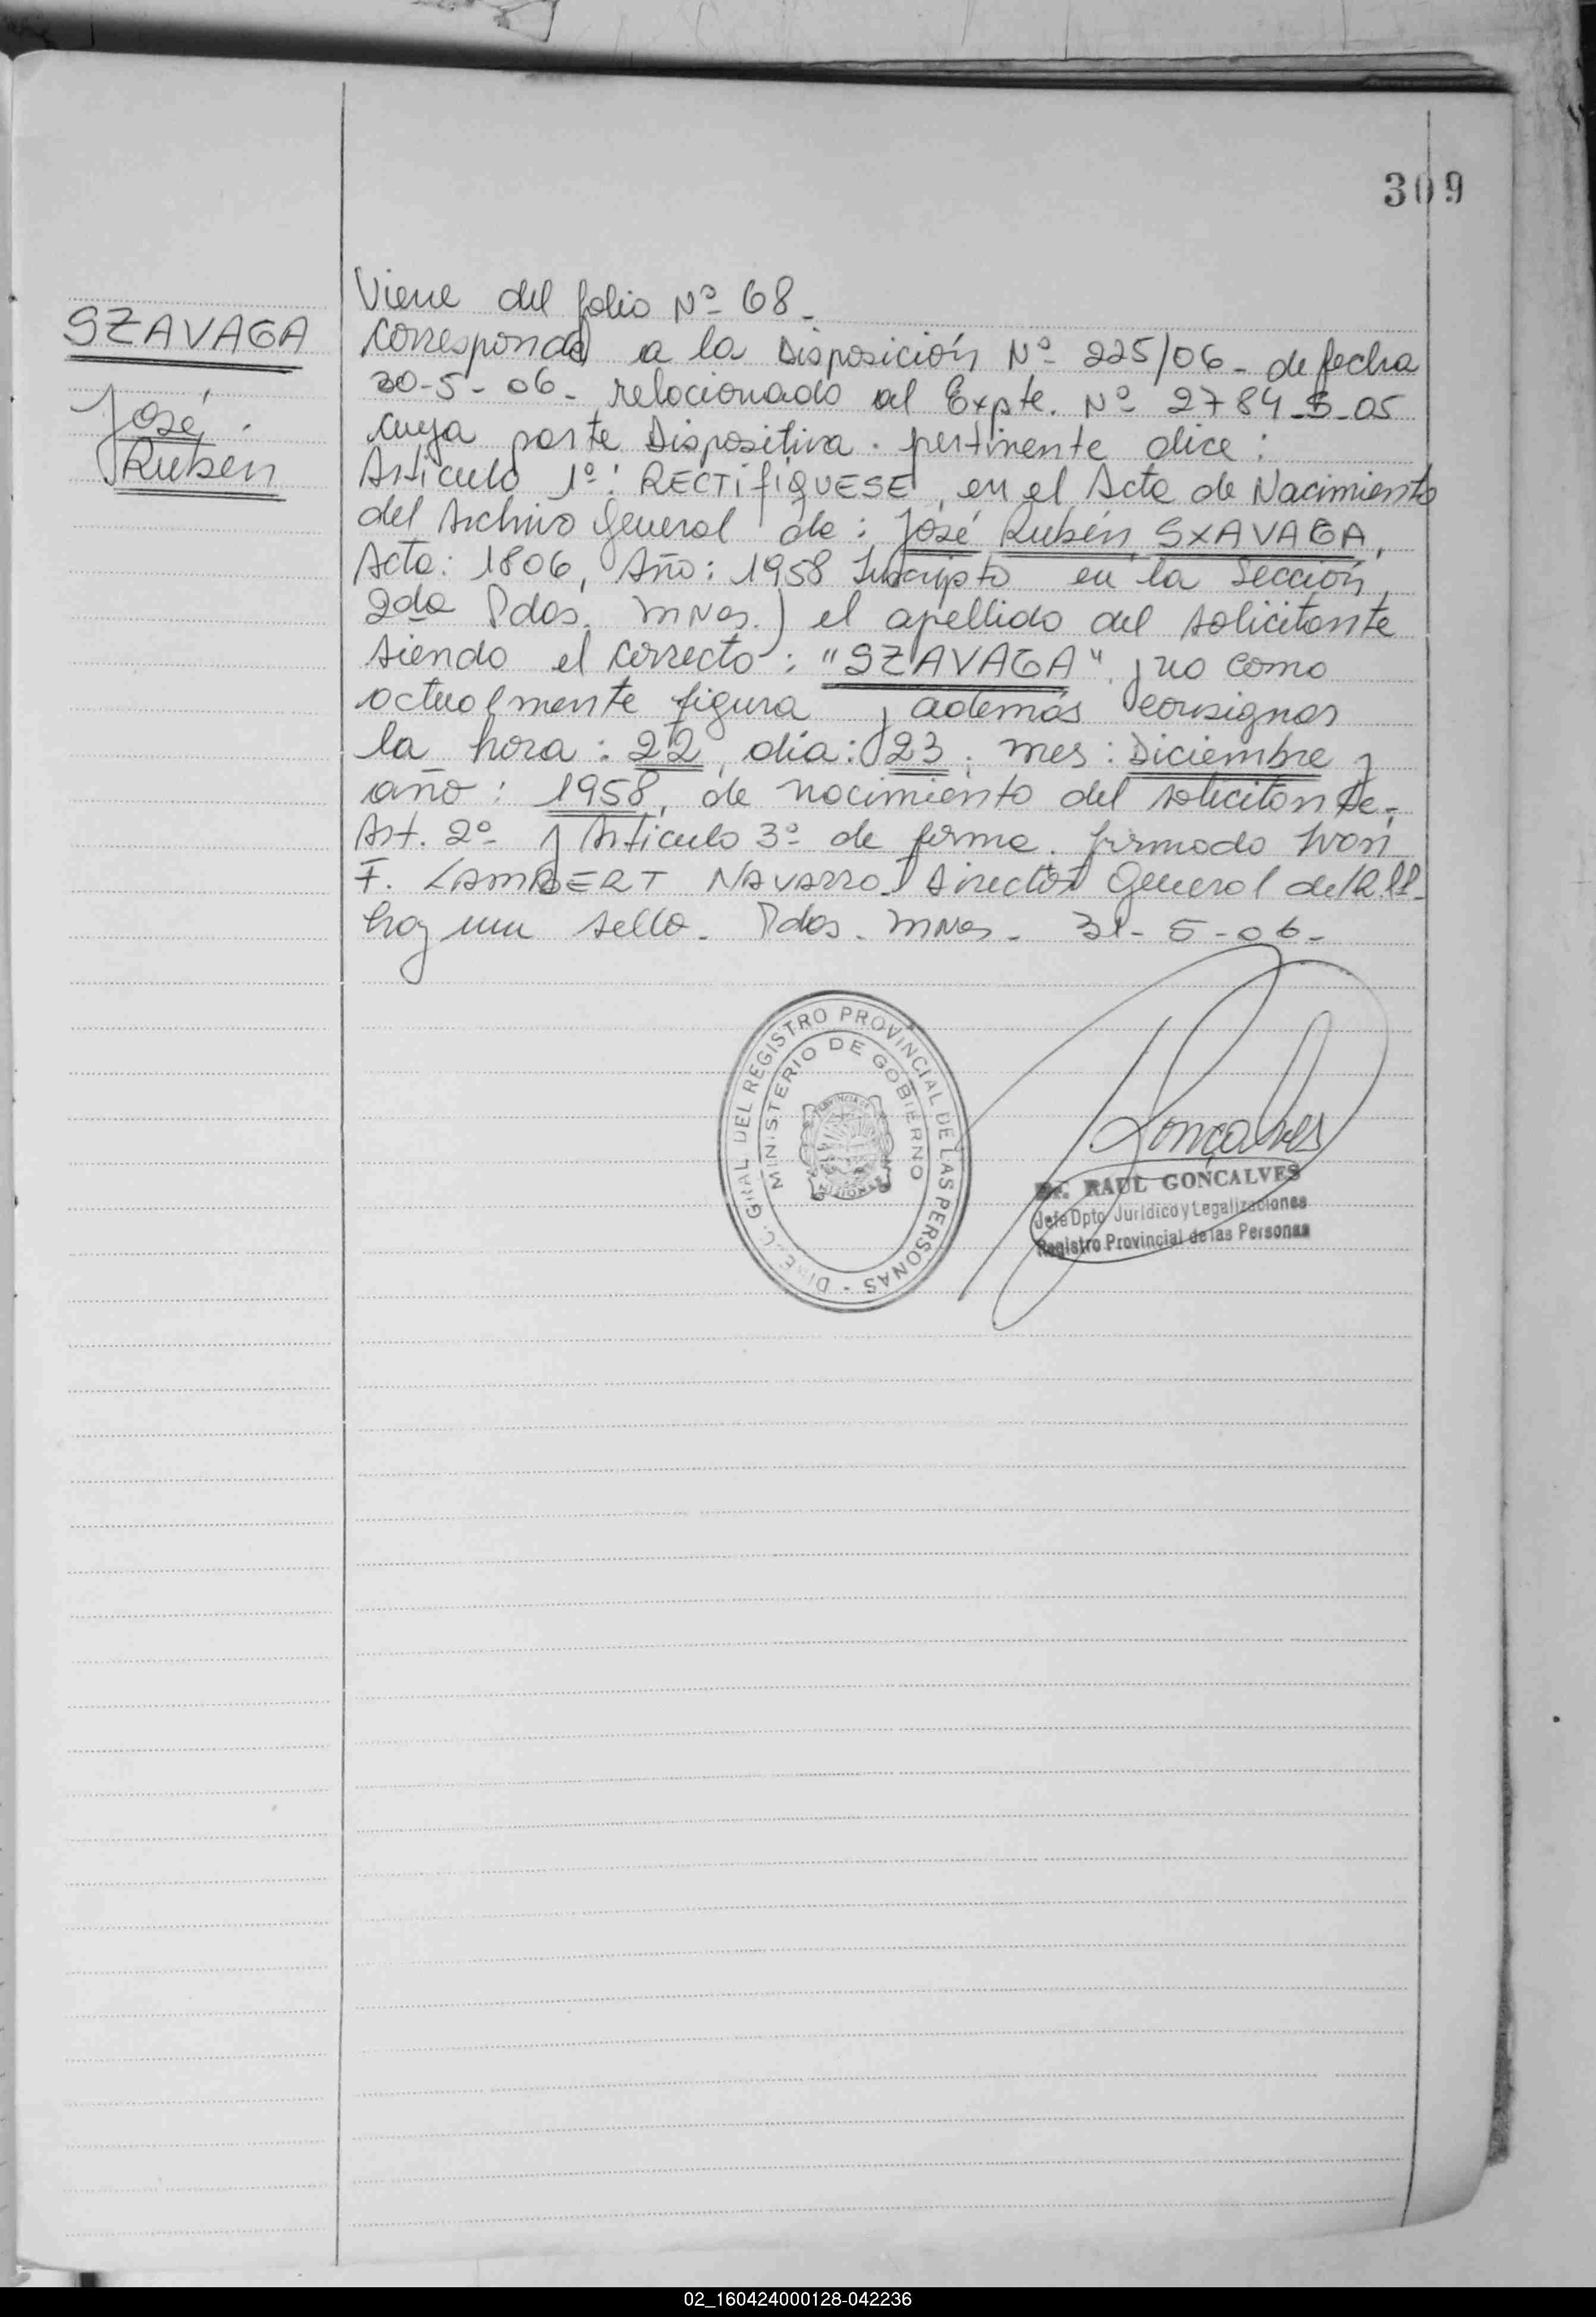 309
SZAVAGA
José
Rubén
Viene del folio Nº 68.
Corresponde a la Disposición Nº 225/06- de fecha
30-5-06- relacionado al Expte. Nº 2784-S-05
cuya parte Dispositiva. pertinente dice:
Articulo 1º: RECTIFIQUESE, en el Acta de Nacimiento
del Archivo General de: José Rubén SXAVAGA,
Acta: 1806, Año: 1958 Inscripto en la Sección
2da Pdas. Mnes.) el apellido del solicitante
siendo el correcto: "SZAVAGA" y no como
actualmente figura y además consignar
la hora: 22, día: 23, mes: Diciembre y
año: 1958, de nacimiento del solicitante.-
Art. 2º y Articulo 3º de forma. firmado Ivon
F. LAMBERT NAVARRO Director General del R.P.P.
hay un sello. Pdas. Mnes. 31-5-06-
DIREC. GRAL. DEL REGISTRO PROVINCIAL DE LAS PERSONAS -
MINISTERIO DE GOBIERNO
PROVINCIA DE
MISIONES
Goncalves
Dr. RAUL GONCALVES
Jefe Dpto. Jurídico y Legalizaciones
Registro Provincial de las Personas
02_160424000128-042236